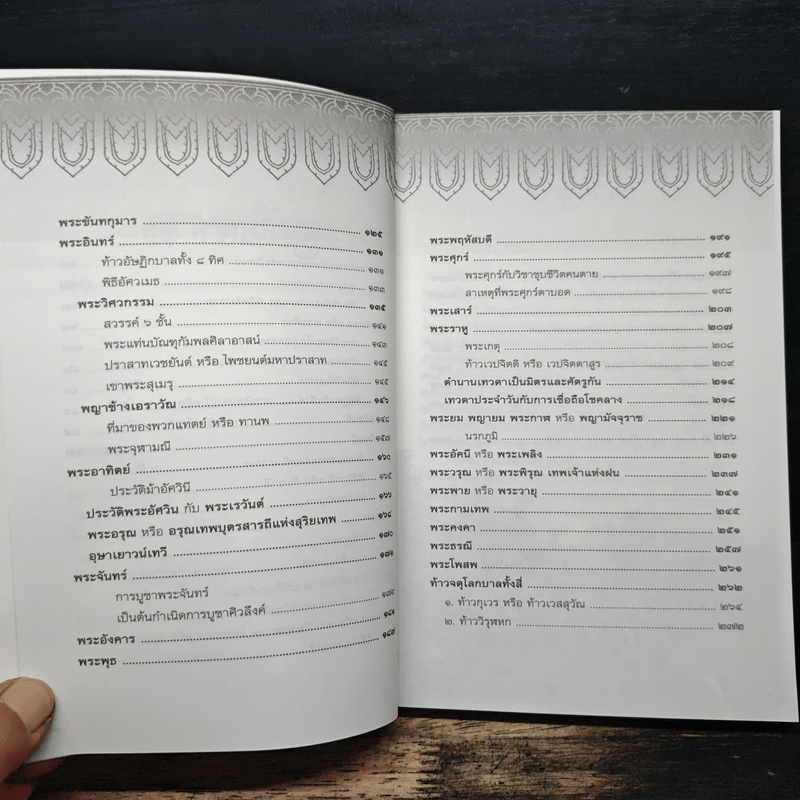 พระขันทกุมาร ๑๒๕
พระอินทร์ ๑๓๑
ท้าวอัษฏิกบาลทั้ง ๘ ทิศ ๑๓๑
พิธีอัศวเมธ ๑๓๓
พระวิศวกรรม ๑๓๕
สวรรค์ ๖ ชั้น ๑๔๑
พระแท่นบัณฑุกัมพลศิลาอาสน์ ๑๔๓
ปราสาทเวชยันต์ หรือ ไพชยนต์มหาปราสาท ๑๔๕
เขาพระสุเมรุ ๑๔๕
พญาช้างเอราวัณ ๑๔๖
ที่มาของพวกแทตย์ หรือ ทานพ ๑๔๘
พระจุฬามณี ๑๕๗
พระอาทิตย์ ๑๖๐
ประวัติม้าอัศวินี ๑๖๕
ประวัติพระอัศวิน กับ พระเรวันต์ ๑๖๖
พระอรุณ หรือ อรุณเทพบุตรสารถีแห่งสุริยเทพ ๑๖๘
อุษาเยาวน์เทวี ๑๗๐
พระจันทร์ ๑๗๑
การบูชาพระจันทร์
เป็นต้นกำเนิดการบูชาศิวลึงค์
พระอังคาร
พระพุธ
พระพฤหัสบดี ๑๙๑
พระศุกร์ ๑๙๕
พระศุกร์กับวิชาชุบชีวิตคนตาย ๑๙๗
สาเหตุที่พระศุกร์ตาบอด ๑๙๘
พระเสาร์ ๒๐๓
พระราหู ๒๐๗
พระเกตุ ๒๐๘
ท้าวเวปจิตติ หรือ เวปจิตตาสูร ๒๐๙
ตำนานเทวดาเป็นมิตรและศัตรูกัน ๒๑๔
เทวดาประจำวันกับการเชื่อถือโชคลาง ๒๑๘
พระยม พญายม พระกาฬ หรือ พญามัจจุราช ๒๒๑
นรกภูมิ ๒๒๖
พระอัคนี หรือ พระเพลิง ๒๓๑
พระวรุณ หรือ พระพิรุณ เทพเจ้าแห่งฝน ๒๓๗
พระพาย หรือ พระวายุ ๒๔๑
พระกามเทพ ๒๔๕
พระคงคา ๒๕๑
พระธรณี ๒๕๗
พระโพสพ ๒๖๑
ท้าวจตุโลกบาลทั้งสี่ ๒๖๒
๑. ท้าวกุเวร หรือ ท้าวเวสสุวัณ ๒๖๔
๒. ท้าววิรุฬหก